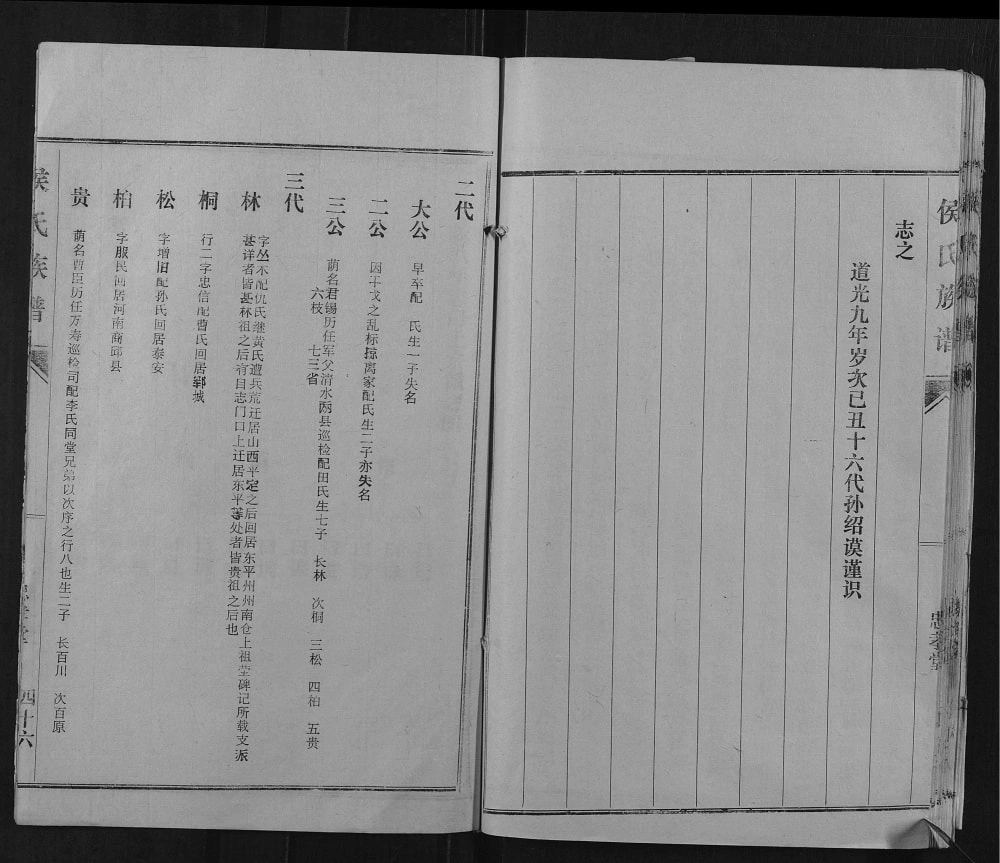 侯氏族谱
忠孝堂
志之
道光九年岁次已丑十六代孙绍谟谨识
二代
大公
早卒配　氏生一子失名
二公
因干戈之乱标掠离家配氏生二子亦失名
三公
荫名君锡历任军父清水两县巡检配田氏生七子　长林　次桐　三松　四柏　五贵
六枝　七三省
三代
林
字丛木配仇氏继黄氏遭兵荒迁居山西平定之后回居东平州州南仓上祖茔碑记所载支派
甚详者皆甚林祖之后有目志门口上迁居东平等处者皆贵祖之后也
桐
行二字忠信配曹氏回居郓城
松
字增旧配孙氏回居泰安
柏
字服民回居河南商邱县
贵
荫名曹臣历任万寿巡检司配李氏同堂兄弟以次序之行八也生二子　长百川　次百原
侯氏族谱
四十六